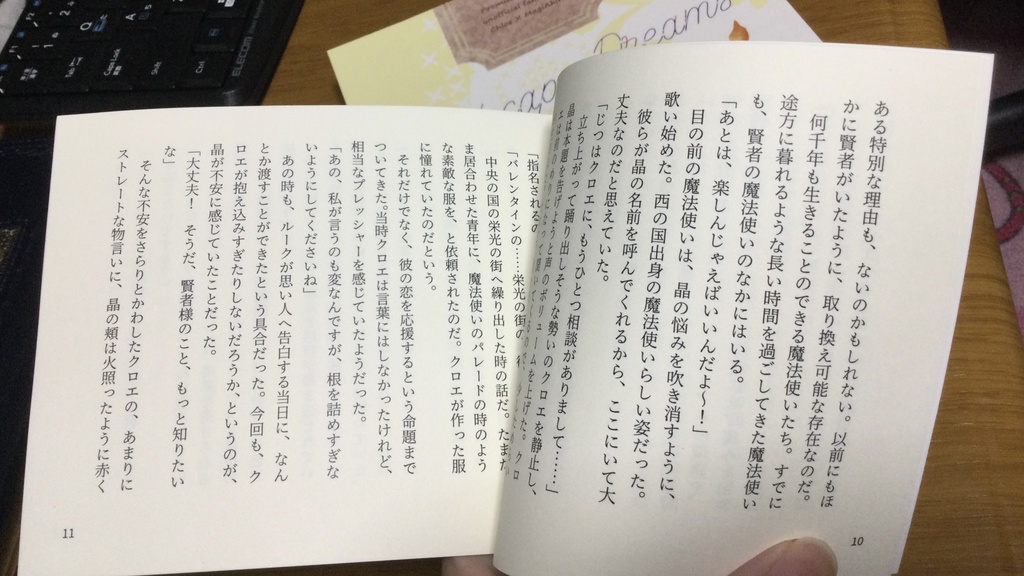 ある特別な理由も、ないのかもしれない。以前にもほ
かに賢者がいたように、取り換え可能な存在なのだ。
何千年も生きることのできる魔法使いたち。すでに
途方に暮れるような長い時間を過ごしてきた魔法使い
も、賢者の魔法使いのなかにはいる。
「あとは、楽しんじゃえばいいんだよ〜！」
目の前の魔法使いは、晶の悩みを吹き消すように、
歌い始めた。西の国出身の魔法使いらしい姿だった。
彼らが晶の名前を呼んでくれるから、ここにいて大
丈夫なのだと思えていた。
「じつはクロエに、もうひとつ相談がありまして……」
立ち上がって踊り出しそうな勢いのクロエを静止し、
晶は本題を告げようと声のボリュームを上げた。クロ
10
「指名される。
「バレンタインの……栄光の街の
中央の国の栄光の街へ繰り出した時の話だ。たまた
ま居合わせた青年に、魔法使いのパレードの時のよう
な素敵な服を、と依頼されたのだ。クロエが作った服
に憧れていたのだという。
それだけでなく、彼の恋を応援するという命題まで
ついてきた。当時クロエは言葉にはしなかったけれど、
相当なプレッシャーを感じていたようだった。
「あの、私が言うのも変なんですが、根を詰めすぎな
いようにしてくださいね」
あの時も、ルークが思い人へ告白する当日に、なん
とか渡すことができたという具合だった。今回も、ク
ロエが抱え込みすぎたりしないだろうか、というのが、
晶が不安に感じていたことだった。
「大丈夫！　そうだ、賢者様のこと、もっと知りたい
な」
そんな不安をさらりとかわしたクロエの、あまりに
ストレートな物言いに、晶の頬は火照ったように赤く
11
Dreams
ELECOM